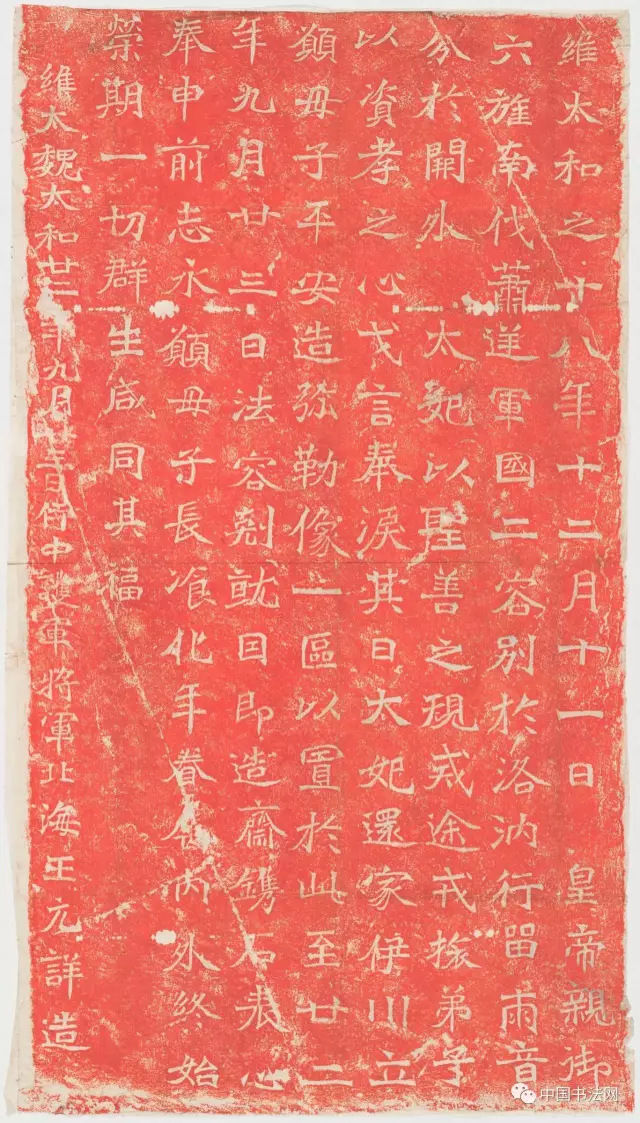 維太和之十八年十二月十一日皇帝親御
六旌南伐蕭逆軍國二容別於洛汭行留兩音
分於開外太妃以聖善之規戒途戎旅弟子
以資孝之心戈言奉淚其日太妃還家伊川立
願毋子平安造弥勒像一區以置於此至廿二
年九月廿三日法容剋就因即造齋鐫石表心
奉申前志永願毋子長湌化年眷屬內外終始
榮期一切群生咸同其福
維大魏太和廿二年九月廿三日侍中護軍將軍北海王元詳造
中国书法网